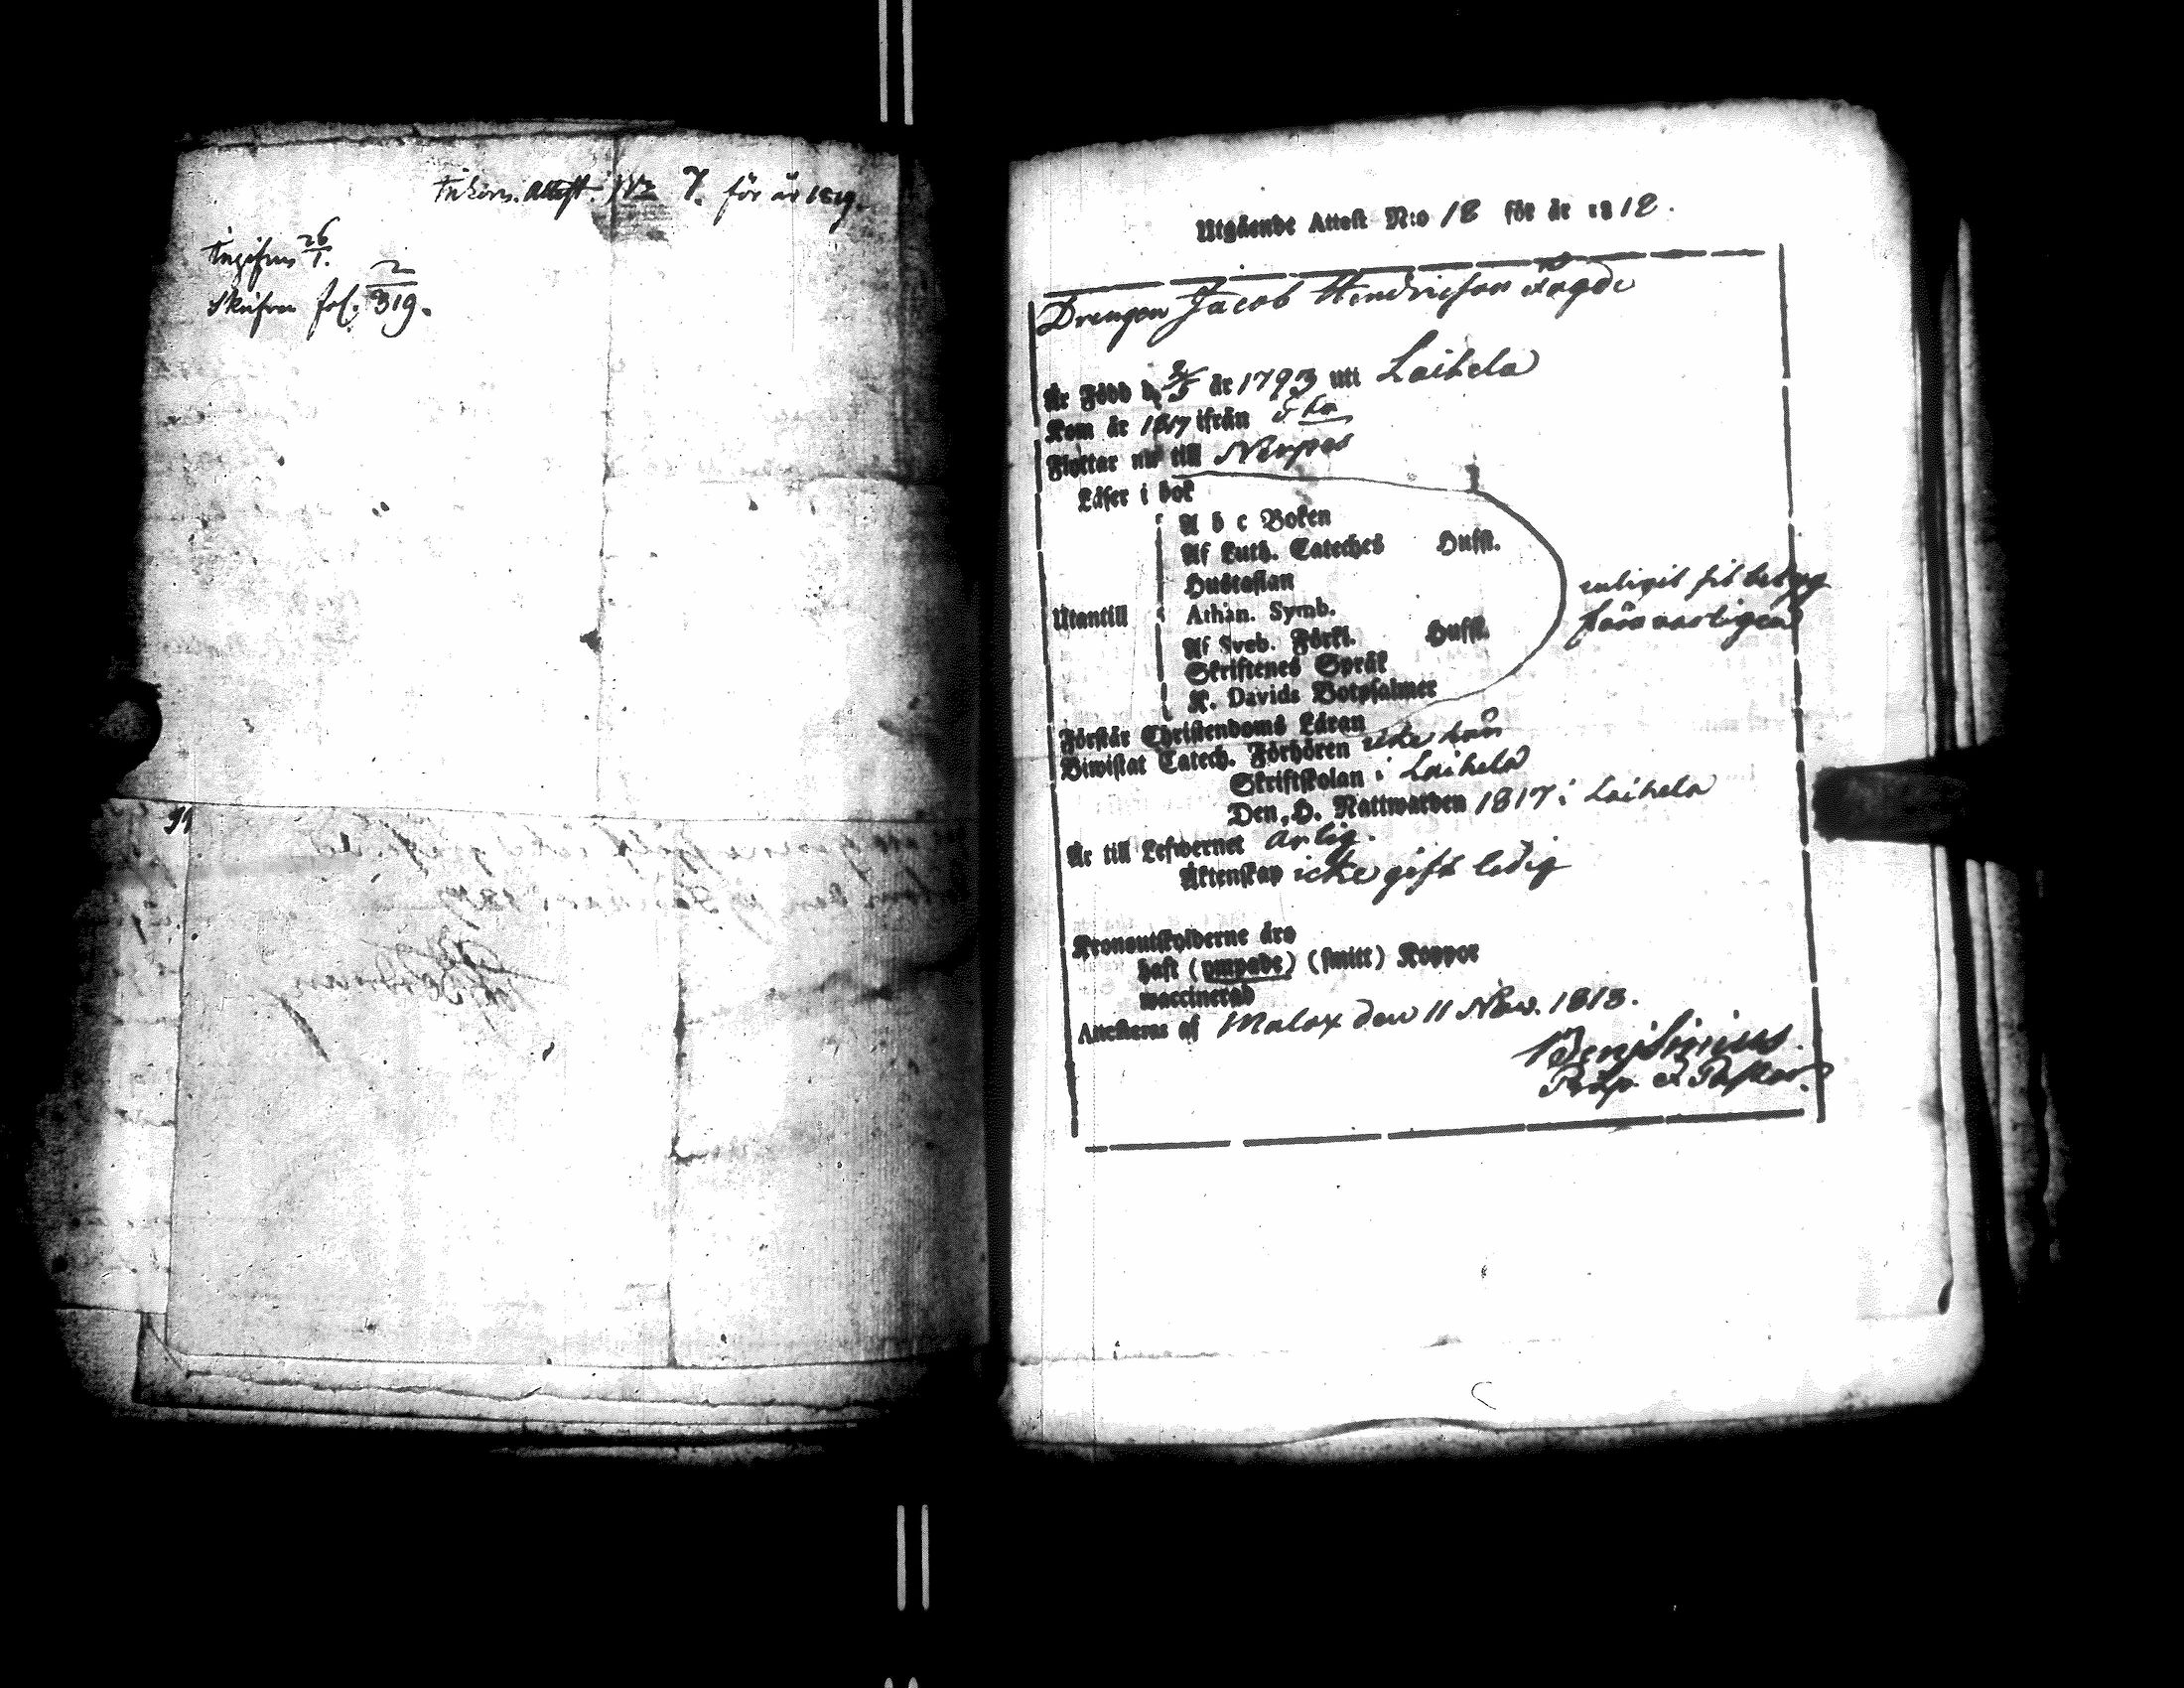 Inkom. Attest. No 7. för år 1819.
Ingifven 26/1.
Skrifven fol. 2/319.
Utgående Attest N:o 18 för år 1818.
Drengen Jacob Hendricson Fågde
Är Född d 2/5 år 1793 uti Laihela
Kom år 1817 ifrån d:o
Flyttar nu till Nerpes
Läser i bok
A b c Boken
Af Luth. Cateches Hufst.
Hustaflan
enligit sit betyg
Utantill Athan. Symb.
försvarligen
Af Sveb. Förkl. Hufst.
Skriftenes Språk
K. Davids Botpsalmer
Förstår Christendoms Läran
Biwistat Catech. Förhören icke här
Skriftskolan i Laihela
Den H. Nattwarden 1817 i Laihela
Är till Lefwernet ärlig.
Äktenskap icke gift ledig
Kronoutskylderne äro
haft (ympade) (smitt) Koppor
waccinerad
Attesteras af Malax den 11 Nov. 1818.
Benj Sinius.
Prop. & Pastor.